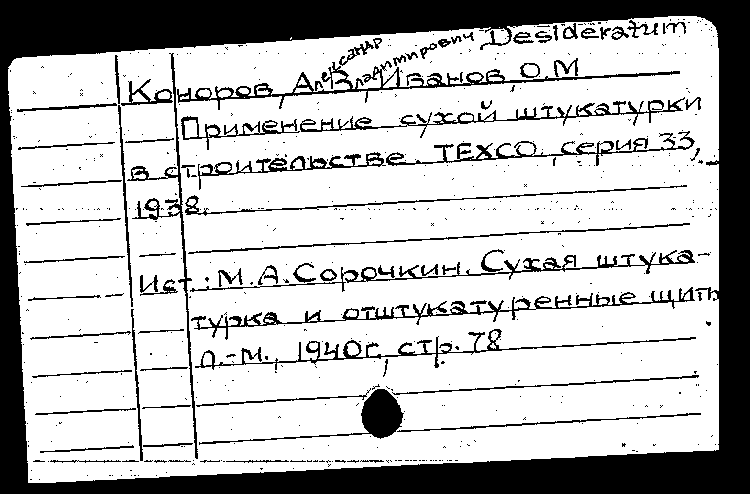 Desideratum
Александр Владимирович
Коноров, А. В., Иванов, О. М
Применение сухой штукатурки
в строительстве. ТЕХСО, серия 33,
1938.
Ист.: М. А. Сорочкин. Сухая штука-
турка и отштукатуренные щиты
Л.-М., 1940г., стр. 78